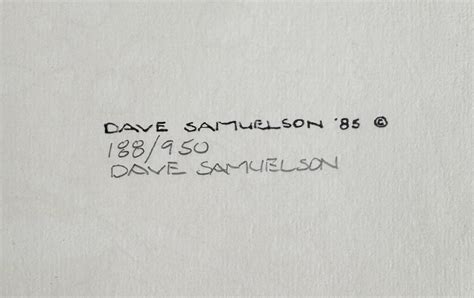 DAVE SAMUELSON '85 ©
188/950
DAVE SAMUELSON